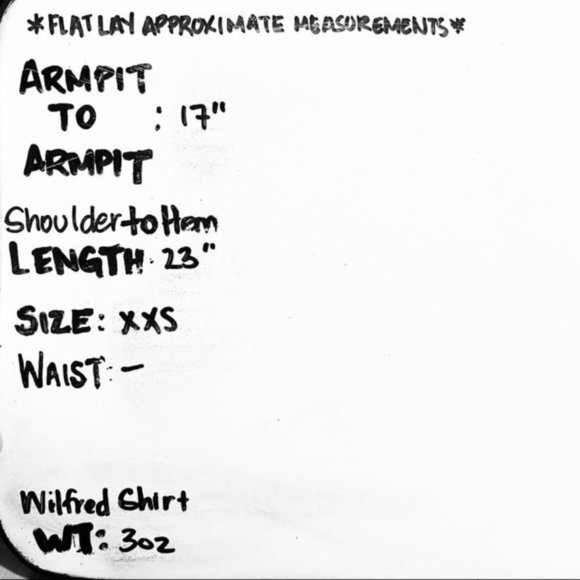 *FLAT LAY APPROXIMATE MEASUREMENTS*
ARMPIT
TO : 17"
ARMPIT
Shoulder to Hem
LENGTH: 23"
SIZE: XXS
WAIST: –
Wilfred Shirt
WT: 3oz